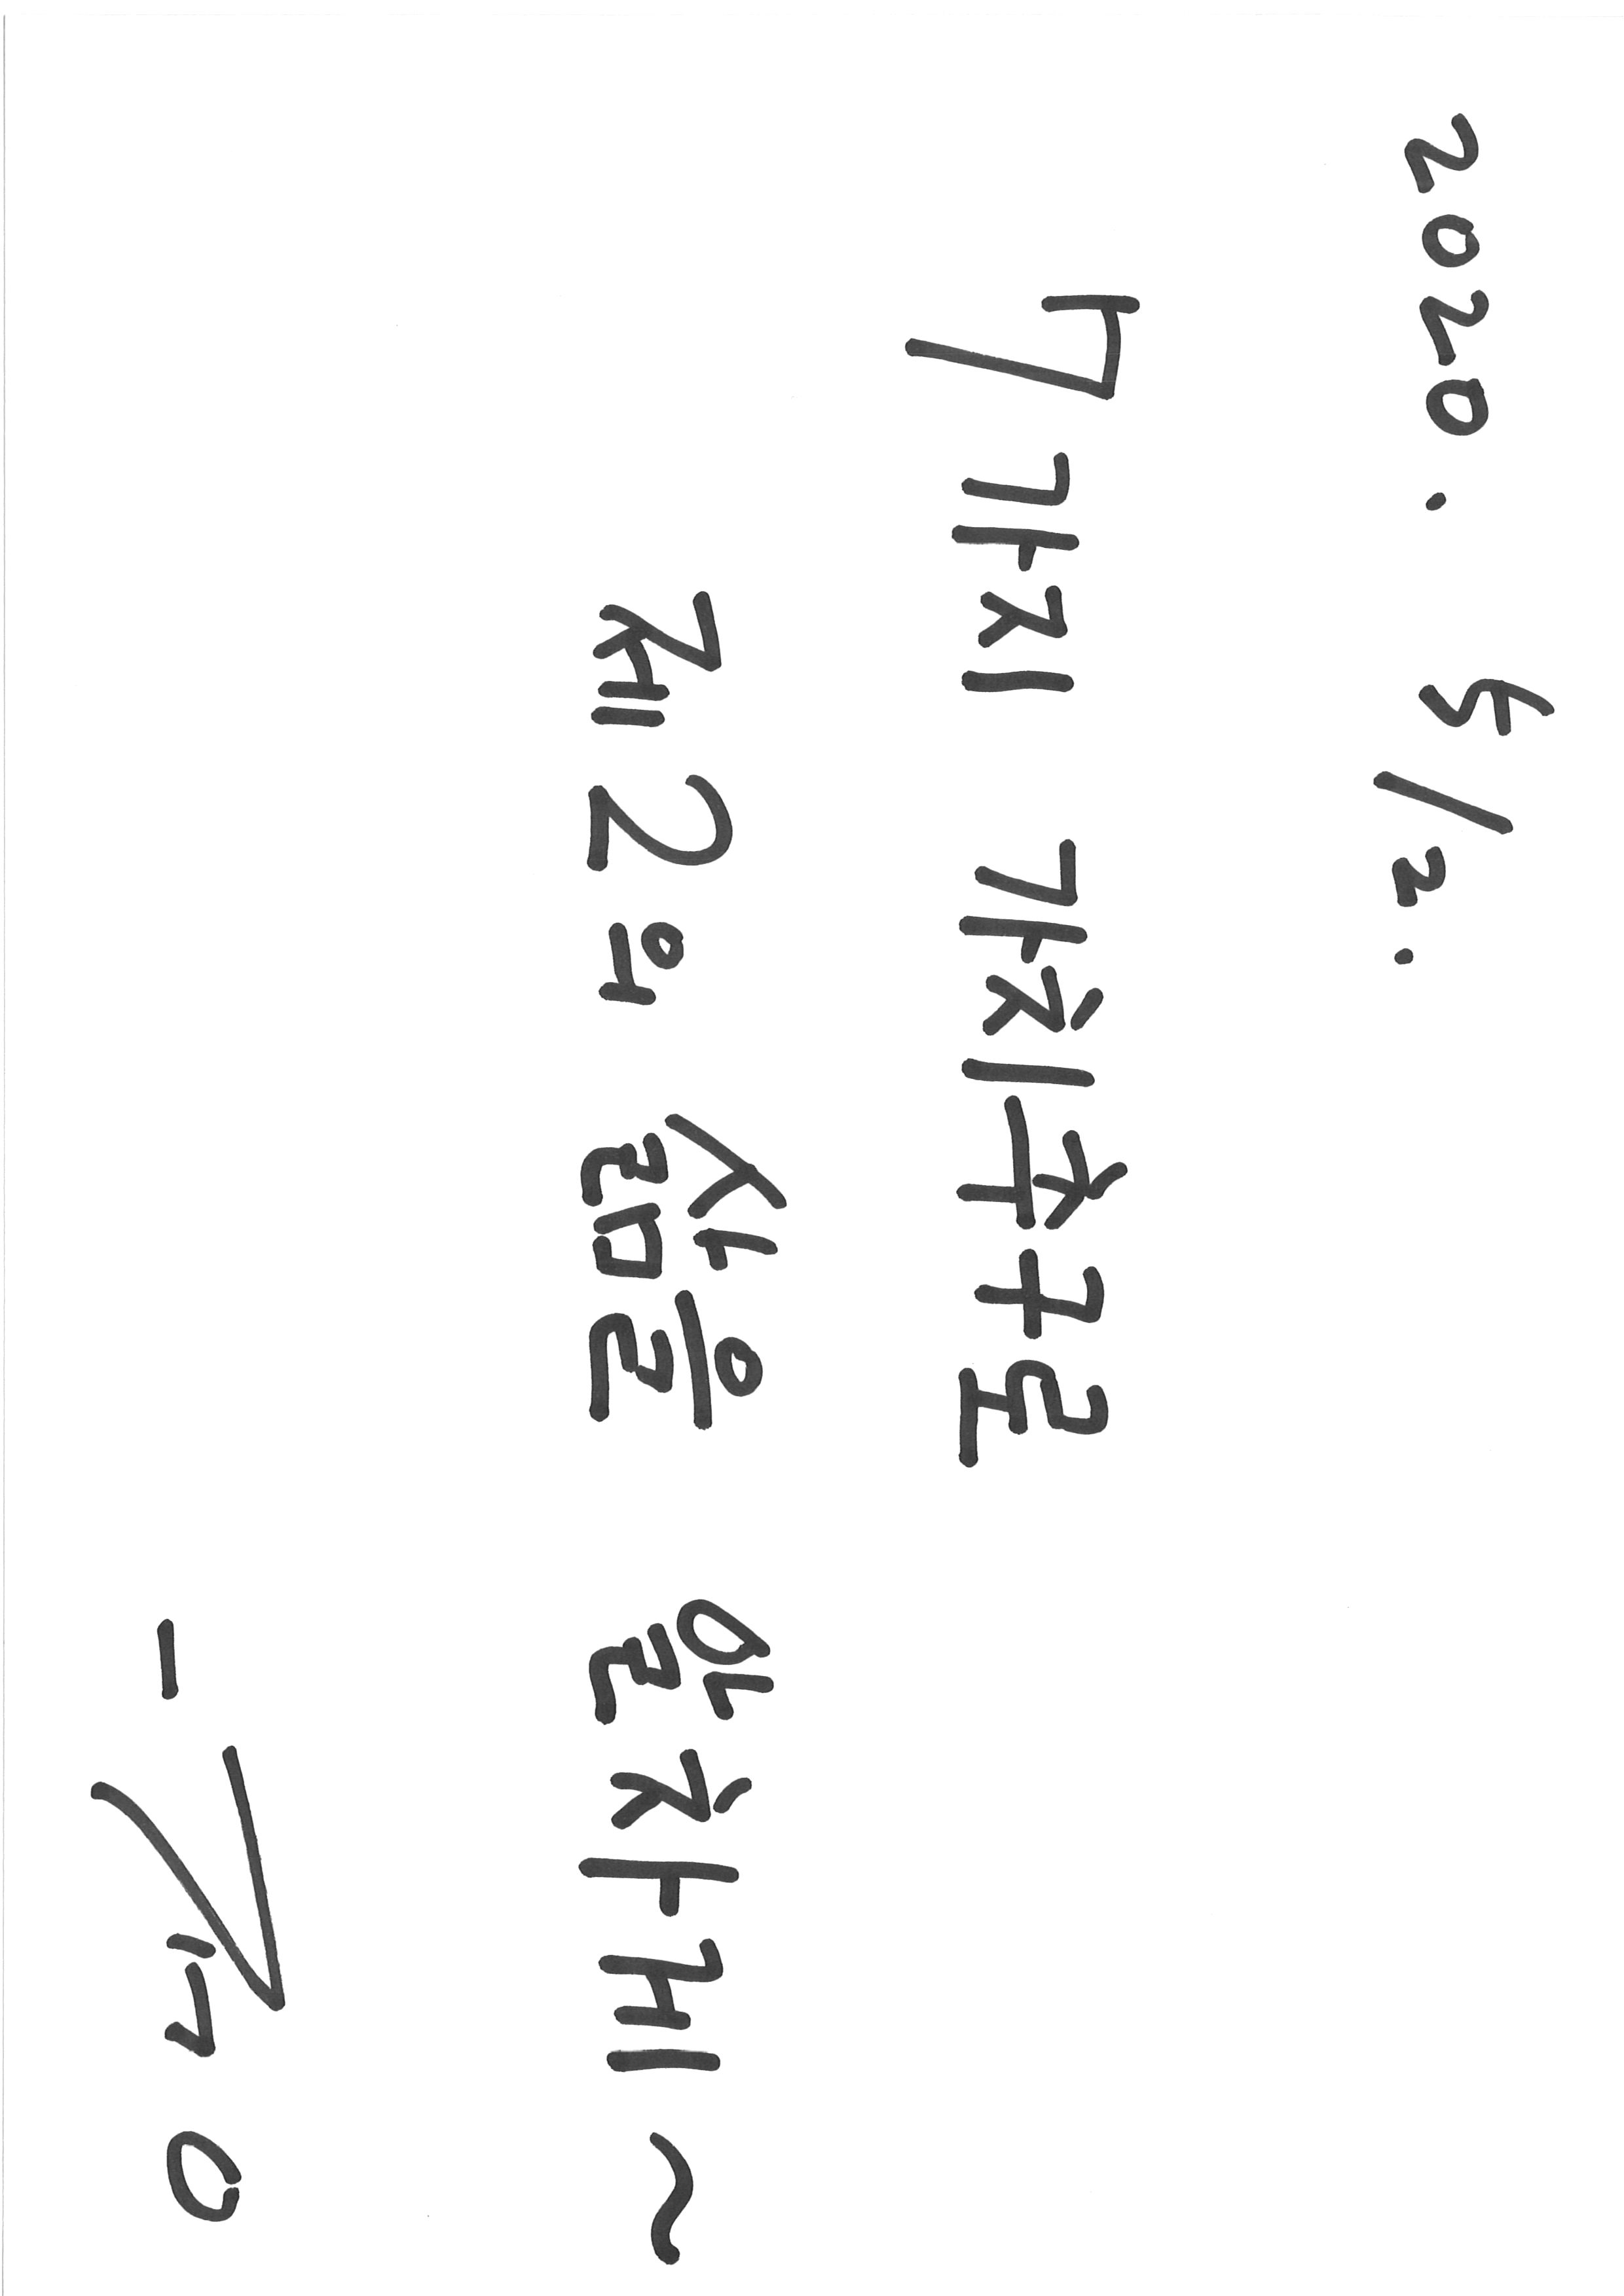 2020. 5/2.
7가지 가치추구로
제2의 삶을 알차게~